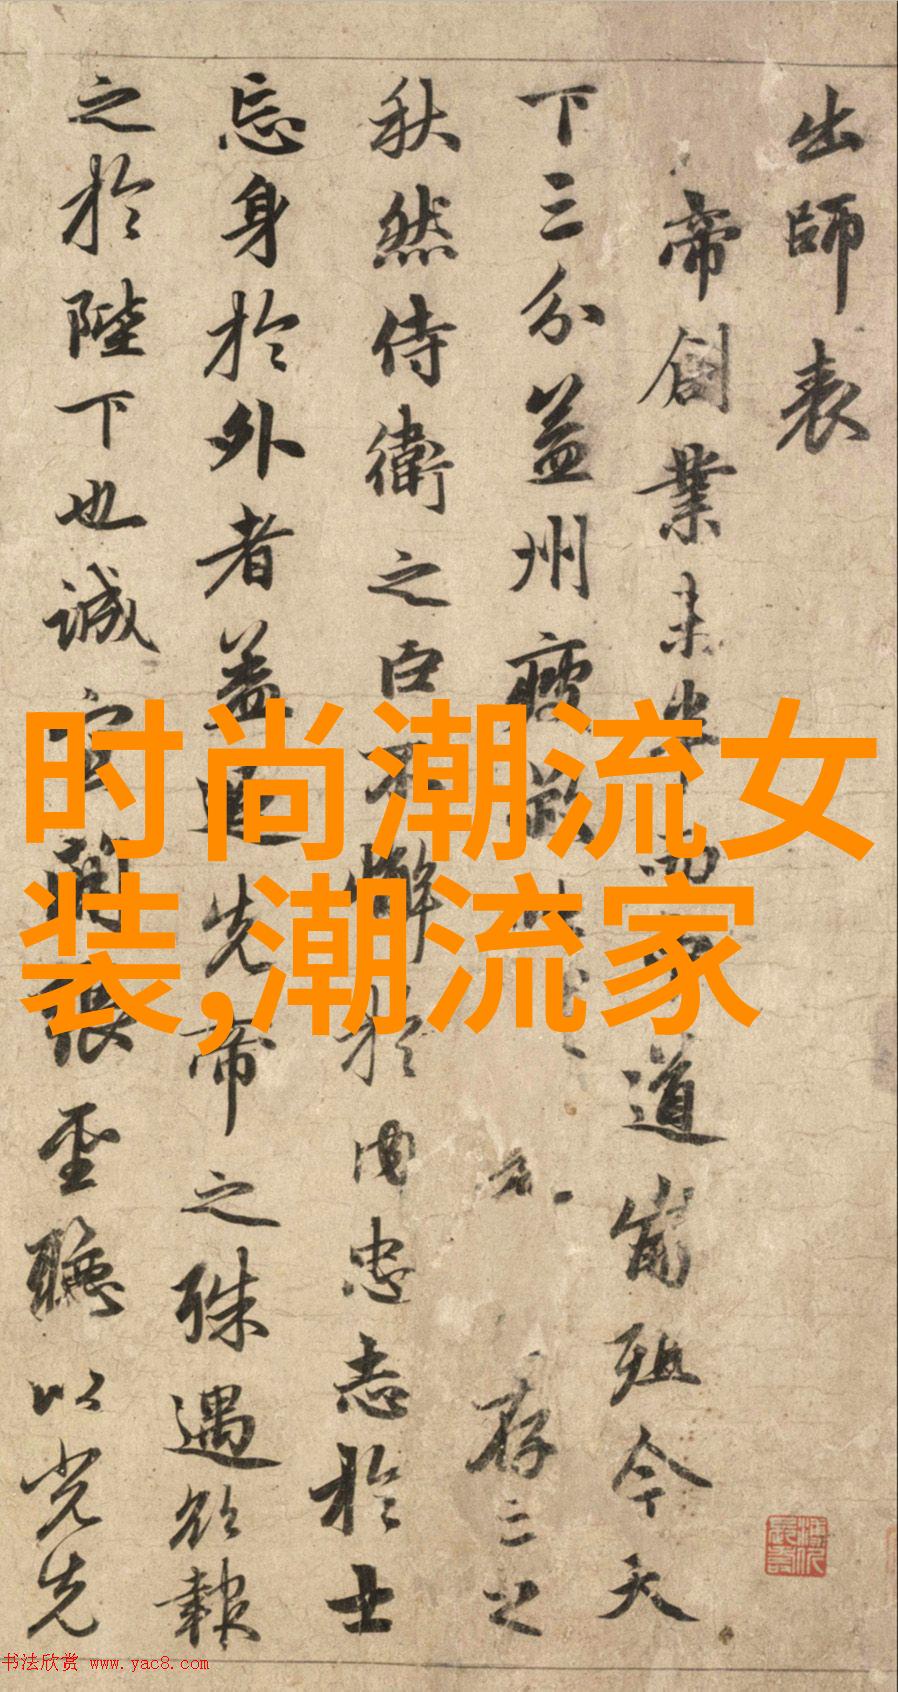 出師表
帝創業未半而道崩殂今天
下三分益州存亡之
秋然侍衛之臣不懈於内忠志於士
忘身於外者蓋追先帝之殊遇欲報
之於陛下也誠宜開張聖聽以光先
时尚潮流女
装,潮流家
书法欣赏 www.yac8.com